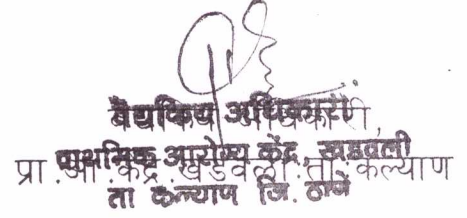 वैद्यकिय अधिकारी
प्राथमिक आरोग्य केंद्र, खडवली
प्रा .आ केंद्र खडवली. ता. कल्याण
ता कल्याण जि. ठाणे